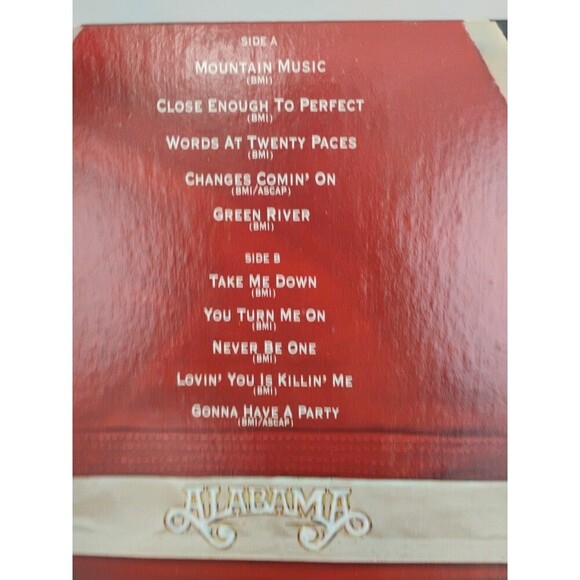 SIDE A
MOUNTAIN MUSIC
(BMI)
CLOSE ENOUGH TO PERFECT
(BMI)
WORDS AT TWENTY PACES
(BMI)
CHANGES COMIN' ON
(BMI/ASCAP)
GREEN RIVER
(BMI)
SIDE B
TAKE ME DOWN
(BMI)
YOU TURN ME ON
(BMI)
NEVER BE ONE
(BMI)
LOVIN' YOU IS KILLIN' ME
(BMI)
GONNA HAVE A PARTY
(BMI/ASCAP)
ALABAMA